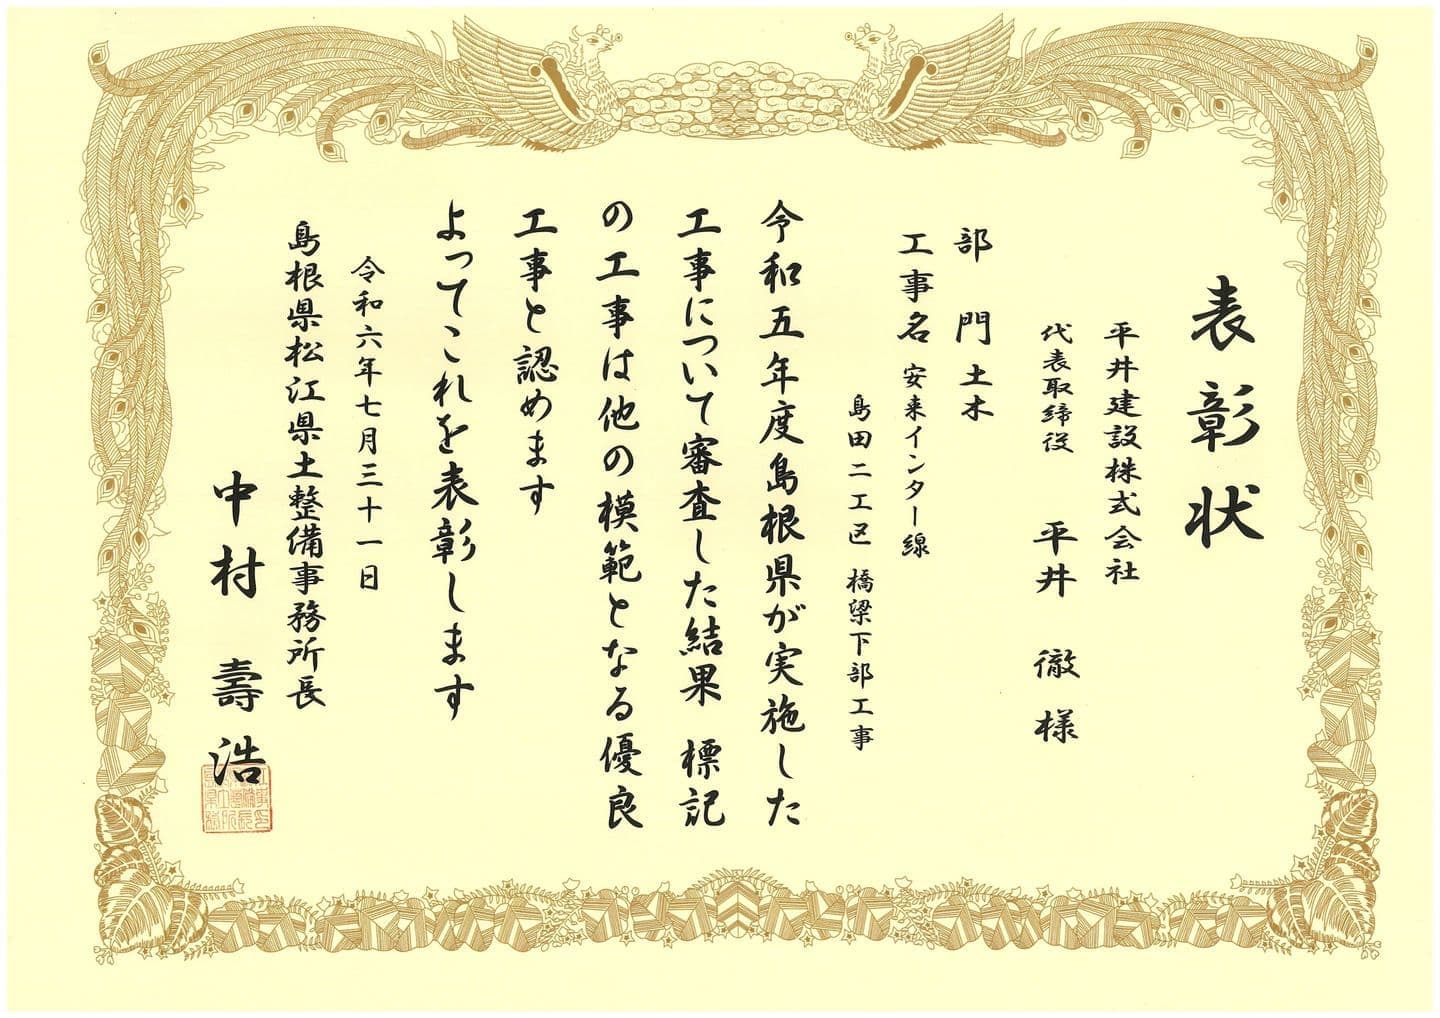 表彰状
平井建設株式会社
代表取締役 平井 徹 様
部門 土木
工事名 安来インター線
島田二工区 橋梁下部工事
令和五年度島根県が実施した
工事について審査した結果 標記
の工事は他の模範となる優良
工事と認めます
よってこれを表彰します
令和六年七月三十一日
島根県松江県土整備事務所長
中村 壽浩